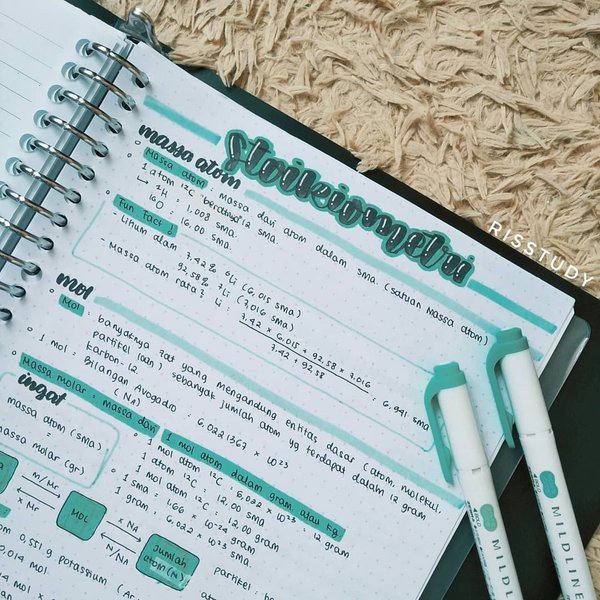 Stoikiometri
RISSTUDY
massa atom
Massa atom : massa dari atom dalam sma. (satuan Massa atom)
1 atom 12C beratnya 12 sma.
↳ 1H : 1,008 sma.
16O : 16,00 sma.
Fun Fact!
- Lihium alam 7,42% 6Li (6,015 sma)
92,58% 7Li (7,016 sma)
- Massa atom rata2 Li : 7,42 x 6,015 + 92,58 x 7,016 : 6,941 sma
7,42 + 92,58
mol
Mol : banyaknya zat yang mengandung entitas dasar (atom, molekul,
partikel lain) sebanyak jumlah atom yg terdapat dalam 12 gram
karbon-12
1 mol : Bilangan Avogadro : 6,0221367 x 10²³
(NA)
Massa molar : massa dari 1 mol atom dalam gram atau kg
1 mol atom 12C : 6,022 x 10²³ : 12 gram
1 atom 12C : 12,00 sma
1 mol atom 12C : 12,00 gram
1 sma : 1,66 x 10-24 gram
1 gram : 6,022 x 10²³ sma.
ingat
massa atom (sma)
=
massa molar (gr)
m/Mr
x Mr
MOL
x NA
N/NA
jumlah
atom (N)
partikel
0,551 g potassium (Ar
0,014 mol
0,014 mol x
MILDLINE
MILDLINER